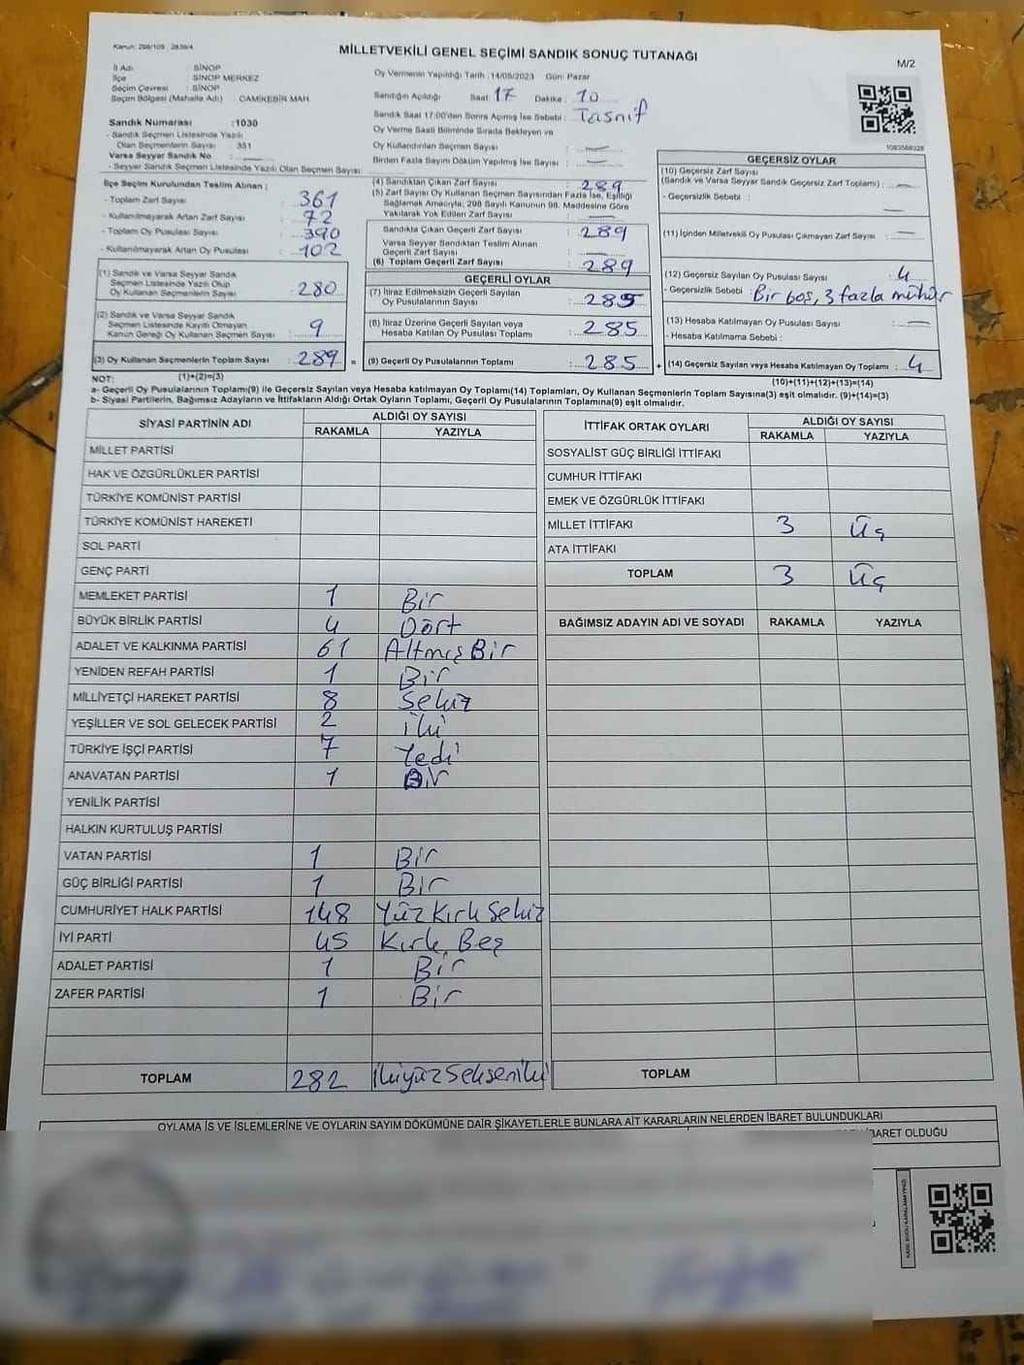 Kanun: 298/105 2839/4
MİLLETVEKİLİ GENEL SEÇİMİ SANDIK SONUÇ TUTANAĞI
M/2
İl Adı : SİNOP
İlçe : SİNOP MERKEZ
Seçim Çevresi : SİNOP
Seçim Bölgesi (Mahalle Adı) : CAMİKEBİR MAH.
Oy Vermenin Yapıldığı Tarih : 14/05/2023 Gün: Pazar
Sandığın Açıldığı Saat: 17 Dakika : 10
Sandık Saat 17:00'den Sonra Açılmış İse Sebebi : Tasnif
Oy Verme Saati Bitiminde Sırada Bekleyen ve
Oy Kullandırılan Seçmen Sayısı : —
Birden Fazla Sayım Döküm Yapılmış İse Sayısı : —
Sandık Numarası :1030
- Sandık Seçmen Listesinde Yazılı
Olan Seçmenlerin Sayısı : 351
Varsa Seyyar Sandık No : —
- Seyyar Sandık Seçmen Listesinde Yazılı Olan Seçmen Sayısı:
İlçe Seçim Kurulundan Teslim Alınan :
- Toplam Zarf Sayısı : 361
- Kullanılmayarak Artan Zarf Sayısı : 72
- Toplam Oy Pusulası Sayısı : 390
- Kullanılmayarak Artan Oy Pusulası : 102
(1) Sandık ve Varsa Seyyar Sandık
Seçmen Listesinde Yazılı Olup
Oy Kullanan Seçmenlerin Sayısı : 280
(2) Sandık ve Varsa Seyyar Sandık
Seçmen Listesinde Kayıtlı Olmayan
Kanun Gereği Oy Kullanan Seçmen Sayısı : 9
(3) Oy Kullanan Seçmenlerin Toplam Sayısı : 289
(1)+(2)=(3)
(4) Sandıktan Çıkan Zarf Sayısı : 289
(5) Zarf Sayısı Oy Kullanan Seçmen Sayısından Fazla İse, Eşitliği
Sağlamak Amacıyla, 298 Sayılı Kanunun 98. Maddesine Göre
Yakılarak Yok Edilen Zarf Sayısı : —
Sandıkta Çıkan Geçerli Zarf Sayısı : 289
Varsa Seyyar Sandıktan Teslim Alınan
Geçerli Zarf Sayısı : —
(6) Toplam Geçerli Zarf Sayısı : 289
GEÇERLİ OYLAR
(7) İtiraz Edilmeksizin Geçerli Sayılan
Oy Pusulalarının Sayısı : 285
(8) İtiraz Üzerine Geçerli Sayılan veya
Hesaba Katılan Oy Pusulası Toplamı : 285
= (9) Geçerli Oy Pusulalarının Toplamı : 285
GEÇERSİZ OYLAR
(10) Geçersiz Zarf Sayısı
(Sandık ve Varsa Seyyar Sandık Geçersiz Zarf Toplamı) : —
- Geçersizlik Sebebi : —
(11) İçinden Milletvekili Oy Pusulası Çıkmayan Zarf Sayısı : —
(12) Geçersiz Sayılan Oy Pusulası Sayısı : 4
- Geçersizlik Sebebi : Bir boş, 3 fazla mühür
(13) Hesaba Katılmayan Oy Pusulası Sayısı : —
- Hesaba Katılmama Sebebi :
+ (14) Geçersiz Sayılan veya Hesaba Katılmayan Oy Toplamı : 4
(10)+(11)+(12)+(13)=(14)
NOT:
a- Geçerli Oy Pusulalarının Toplamı(9) ile Geçersiz Sayılan veya Hesaba katılmayan Oy Toplamı(14) Toplamları, Oy Kullanan Seçmenlerin Toplam Sayısına(3) eşit olmalıdır. (9)+(14)=(3)
b- Siyasi Partilerin, Bağımsız Adayların ve İttifakların Aldığı Ortak Oyların Toplamı, Geçerli Oy Pusulalarının Toplamına(9) eşit olmalıdır.
SİYASİ PARTİNİN ADI ALDIĞI OY SAYISI
RAKAMLA YAZIYLA
MİLLET PARTİSİ
HAK VE ÖZGÜRLÜKLER PARTİSİ
TÜRKİYE KOMÜNİST PARTİSİ
TÜRKİYE KOMÜNİST HAREKETİ
SOL PARTİ
GENÇ PARTİ
MEMLEKET PARTİSİ 1 Bir
BÜYÜK BİRLİK PARTİSİ 4 Dört
ADALET VE KALKINMA PARTİSİ 61 Altmış Bir
YENİDEN REFAH PARTİSİ 1 Bir
MİLLİYETÇİ HAREKET PARTİSİ 8 Sekiz
YEŞİLLER VE SOL GELECEK PARTİSİ 2 İki
TÜRKİYE İŞÇİ PARTİSİ 7 Yedi
ANAVATAN PARTİSİ 1 Bir
YENİLİK PARTİSİ
HALKIN KURTULUŞ PARTİSİ
VATAN PARTİSİ 1 Bir
GÜÇ BİRLİĞİ PARTİSİ 1 Bir
CUMHURİYET HALK PARTİSİ 148 Yüz Kırk Sekiz
İYİ PARTİ 45 Kırk Beş
ADALET PARTİSİ 1 Bir
ZAFER PARTİSİ 1 Bir
TOPLAM 282 İkiyüz Seksen İki
İTTİFAK ORTAK OYLARI ALDIĞI OY SAYISI
RAKAMLA YAZIYLA
SOSYALİST GÜÇ BİRLİĞİ İTTİFAKI
CUMHUR İTTİFAKI
EMEK VE ÖZGÜRLÜK İTTİFAKI
MİLLET İTTİFAKI 3 Üç
ATA İTTİFAKI
TOPLAM 3 Üç
BAĞIMSIZ ADAYIN ADI VE SOYADI RAKAMLA YAZIYLA
TOPLAM
OYLAMA İŞ VE İŞLEMLERİNE VE OYLARIN SAYIM DÖKÜMÜNE DAİR ŞİKAYETLERLE BUNLARA AİT KARARLARIN NELERDEN İBARET BULUNDUKLARI
İBARET OLDUĞU